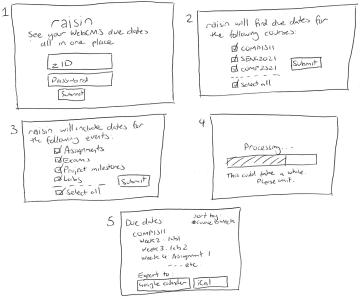 1
raisin
See your WebCMS due dates
all in one place
zID
Password
Submit
2
raisin will find due dates for
the following courses:
COMP1511
SENG2021
COMP2521
Submit
Select all
3
raisin will include dates for
the following events:
Assignments
Exams
Project milestones
Labs
Submit
Select all
4
Processing...
This could take a while.
Please wait.
5
Due dates
Sort by:
COMP1511
Week 2: lab1
Week 3: lab2
Week 4: Assignment 1
--- etc
Export to:
Google calendar
iCal